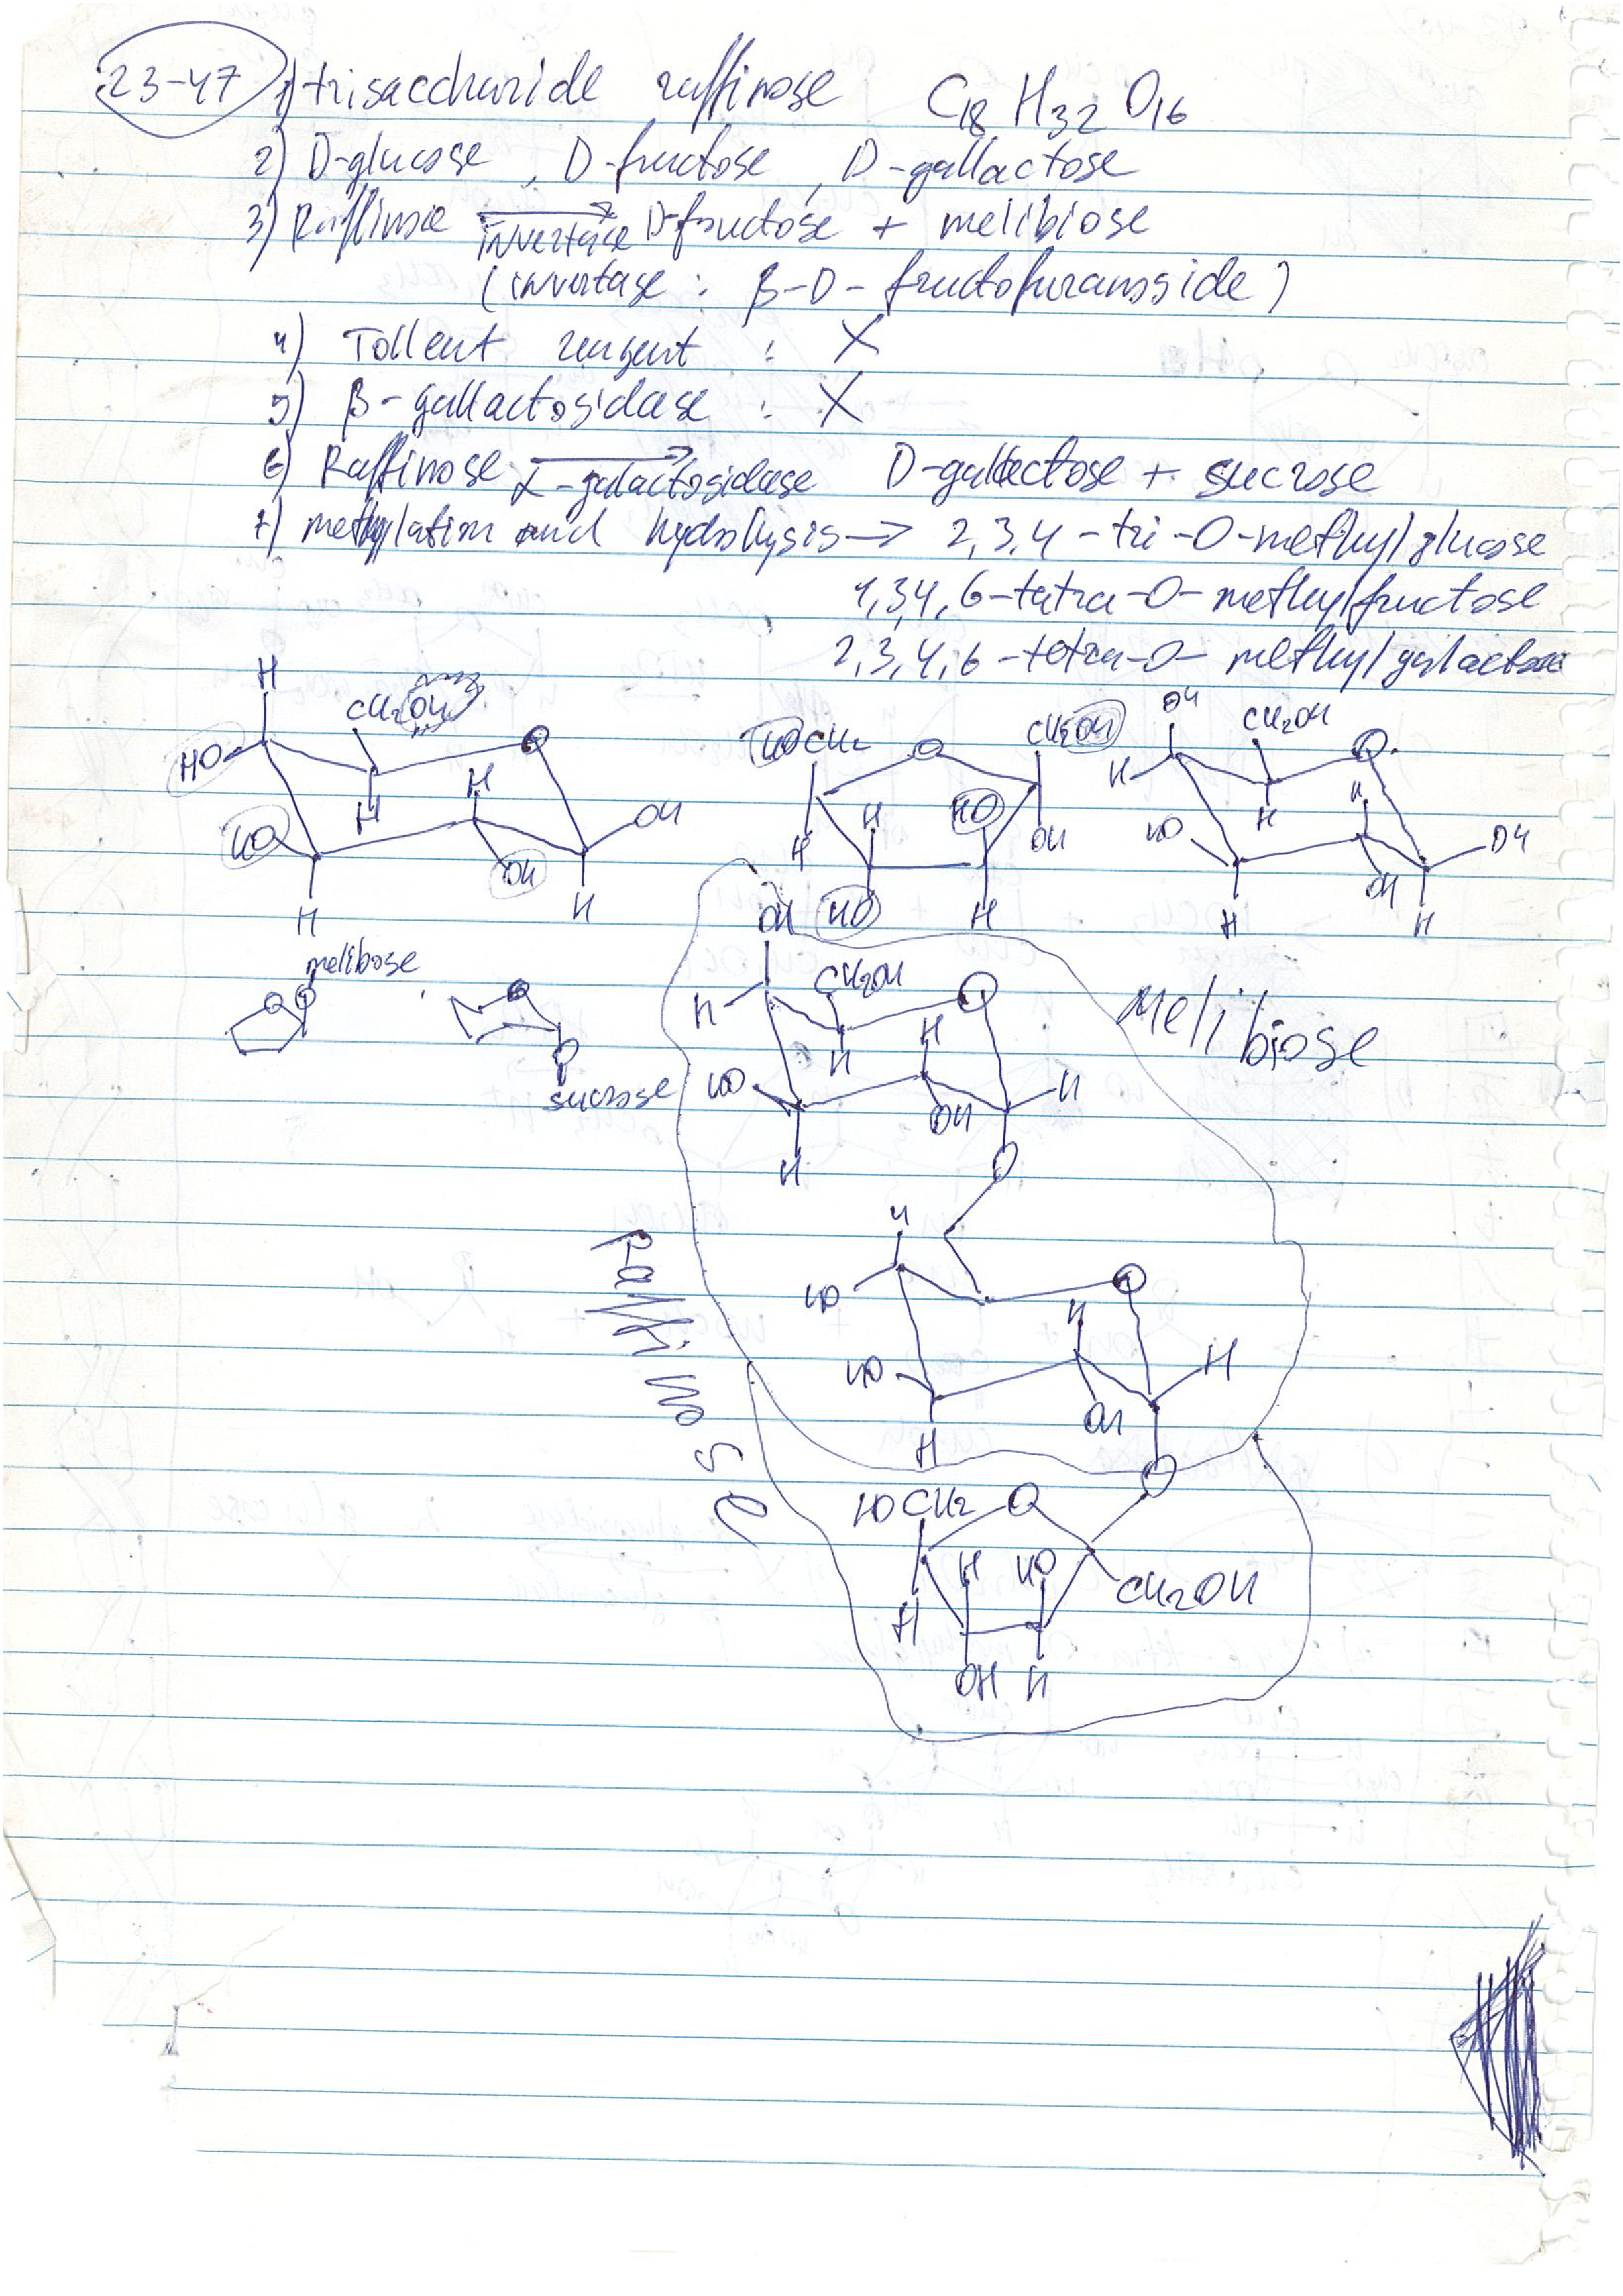 23-47 1) trisaccharide raffinose C18 H32 O16
2) D-glucose , D-fructose , D-gallactose
3) Raffinose invertase D-fructose + melibiose
(invertase : β-D-fructofuranoside)
4) Tollent reagent : X
5) β-gallactosidase : X
6) Raffinose α-galactosidase D-galactose + sucrose
7) methylation and hydrolysis → 2,3,4-tri-O-methylglucose
1,3,4,6-tetra-O-methylfructose
2,3,4,6-tetra-O-methylgalactose
H
CH2OH O
HO H
H
HO OH OH
H H
HOCH2 O CH2OH
H HO
H OH
HO H
OH
CH2OH O
H H
HO H OH
OH
H H
melibose
O O
O
O
sucrose
OH
CH2OH O Melibiose
H H
H
HO OH H
H O
H
HO O
H
HO OH H
H
O
HOCH2 O
H HO CH2OH
H
OH H
Raffinose